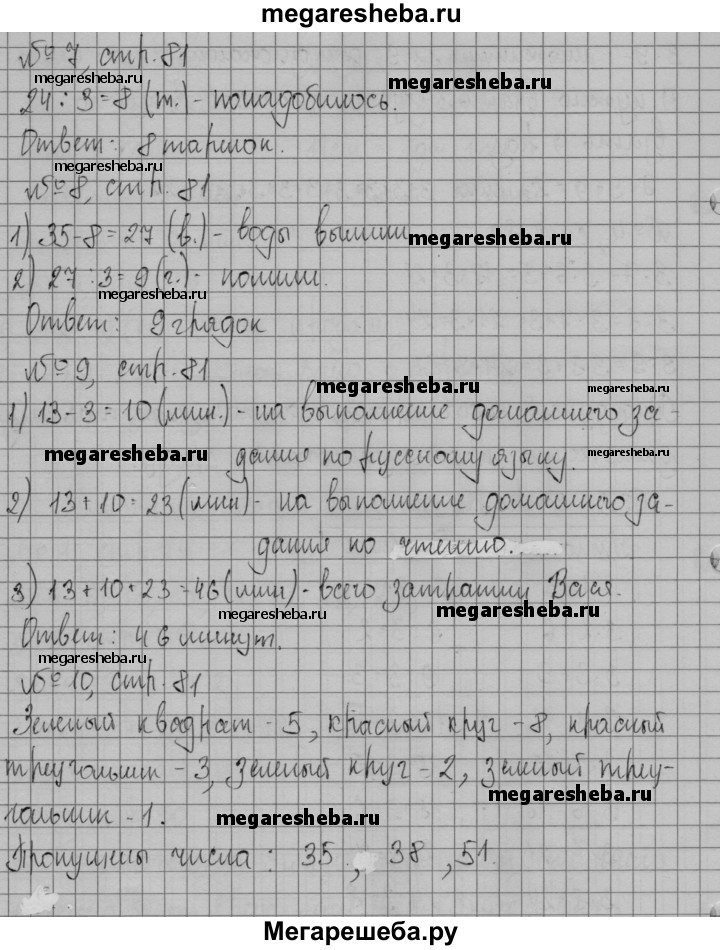 megaresheba.ru
№ 7, стр. 81
megaresheba.ru
megaresheba.ru
24 : 3 = 8 (т.) - понадобилось.
Ответ: 8 тарелок.
megaresheba.ru
№ 8, стр. 81
1) 35 - 8 = 27 (в.) - воды вылили
megaresheba.ru
2) 27 : 3 = 9 (г.) - полили.
megaresheba.ru
Ответ: 9 грядок
№ 9, стр. 81
megaresheba.ru
megaresheba.ru
1) 13 - 3 = 10 (мин.) - на выполнение домашнего за-
megaresheba.ru
дания по русскому языку.
megaresheba.ru
2) 13 + 10 = 23 (мин) - на выполнение домашнего за-
дания по чтению.
3) 13 + 10 + 23 = 46 (мин) - всего затратил Вася.
megaresheba.ru
megaresheba.ru
Ответ: 46 минут.
megaresheba.ru
№ 10, стр. 81
Зеленый квадрат - 5, красный круг - 8, красный
треугольник - 3, зеленый круг = 2, зеленый треу-
megaresheba.ru
гольник - 1.
megaresheba.ru
Пропущены числа: 35, 38, 51.
Мегарешеба.ру